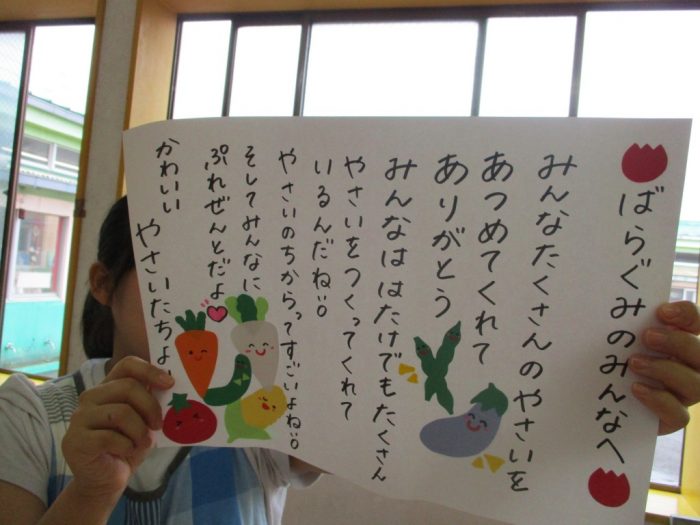 ばらぐみのみんなへ
みんなたくさんのやさいを
あつめてくれて
ありがとう
みんなははたけでもたくさん
やさいをつくってくれて
いるんだね
やさいのちからってすごいよね
そしてみんなに
ぷれぜんとだよ
かわいい
やさいたちよ